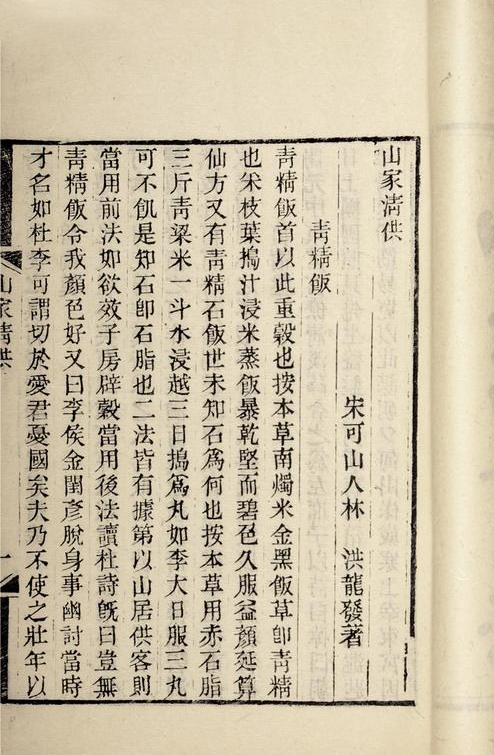 山家淸供
宋可山人林　洪龍發著
靑精飯
靑精飯首以此重穀也按本草南燭米金黑飯草卽靑精
也采枝葉搗汁浸米蒸飯暴乾堅而碧色久服益顏延算
仙方又有靑精石飯世未知石爲何也按本草用赤石脂
三斤靑梁米一斗水浸越三日搗爲丸如李大日服三丸
可不飢是知石卽石脂也二法皆有據第以山居供客則
當用前法如欲效子房辟穀當用後法讀杜詩旣曰豈無
靑精飯令我顏色好又曰李侯金閨彥脫身事幽討當時
才名如杜李可謂切於愛君憂國矣夫乃不使之壯年以
山家淸供
一